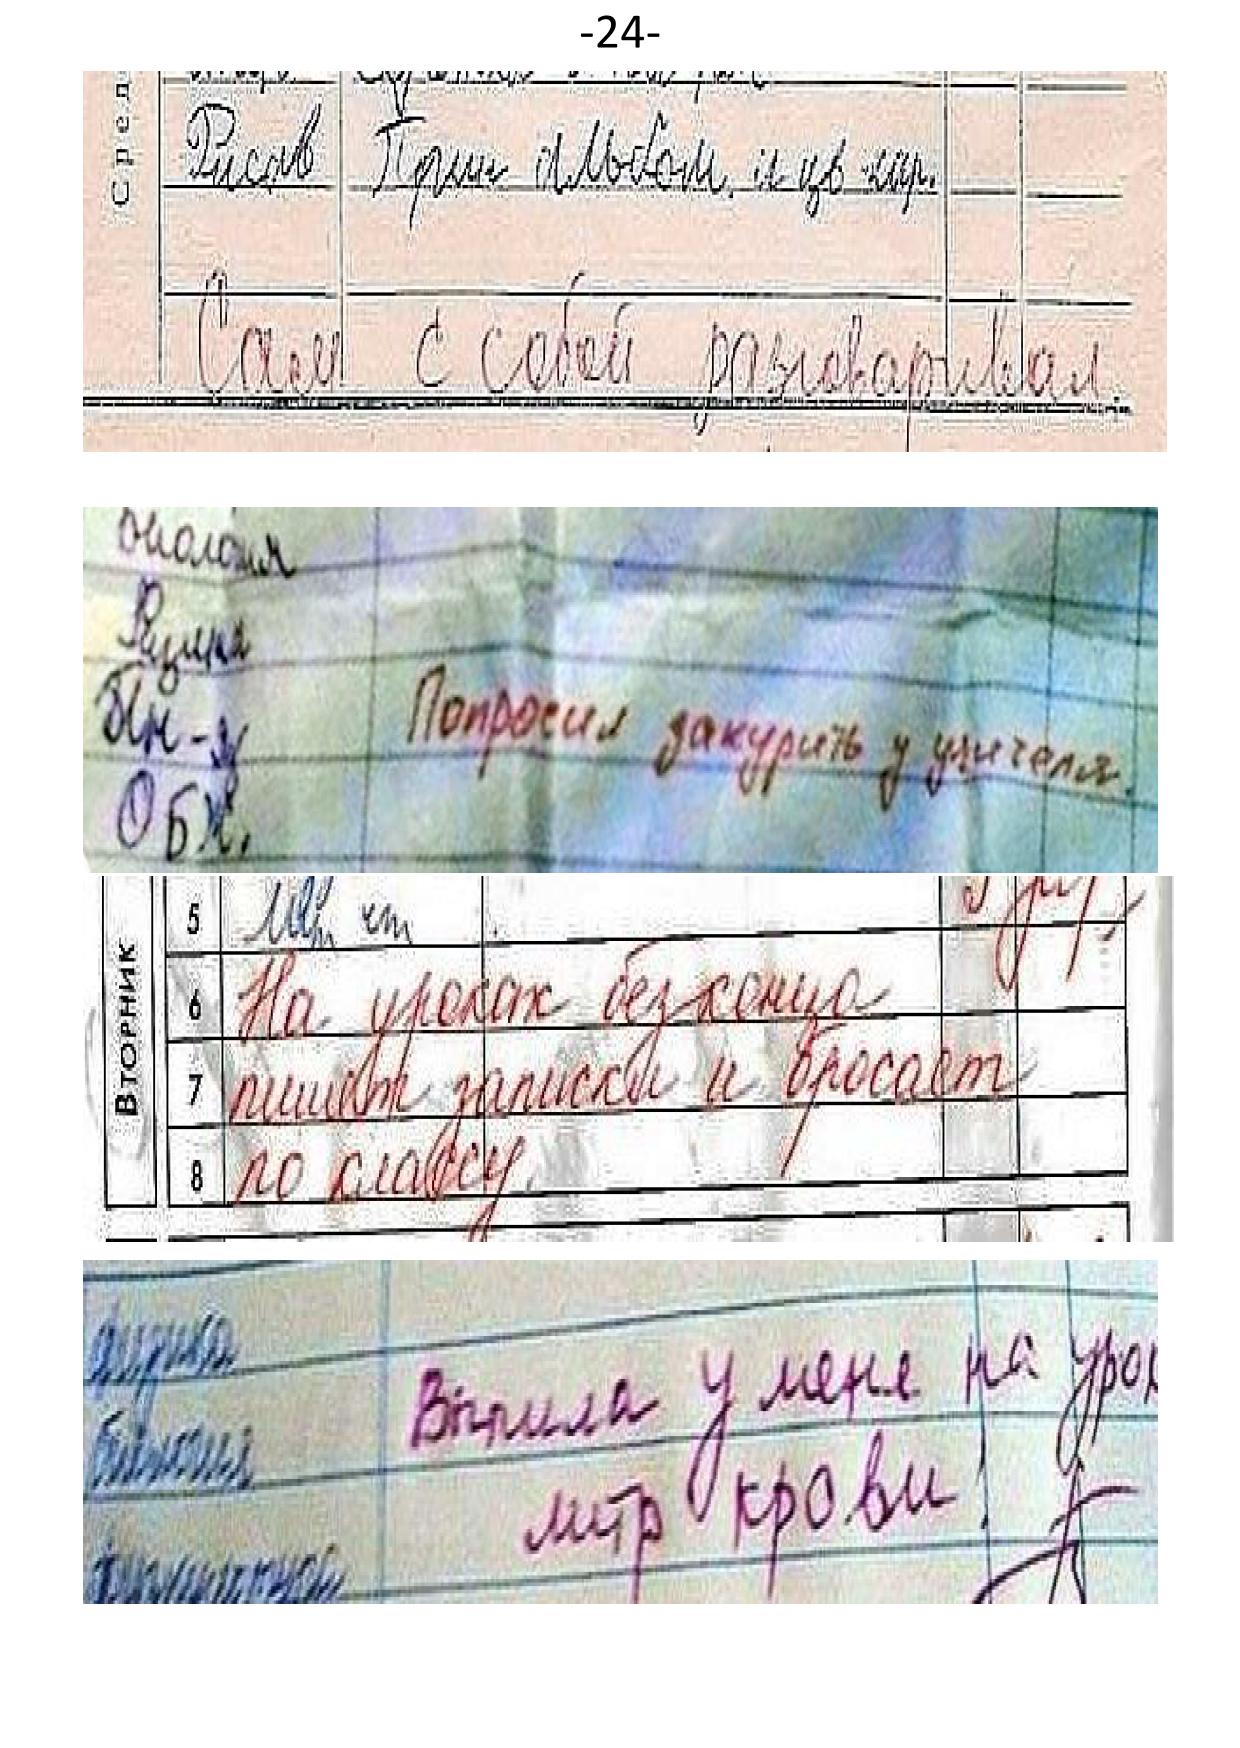 -24-
Сред
Рисов Прин альбом. и цв кар.
Сам с собой разговаривал
биология
Физика
Ин-яз
ОБЖ.
Попросил закурить у учителя.
Вторник
5 чт
6 На уроках без конца
7 пишет записки и бросает
8 по классу.
физика
биология
Выпила у мене на урок
литр крови!